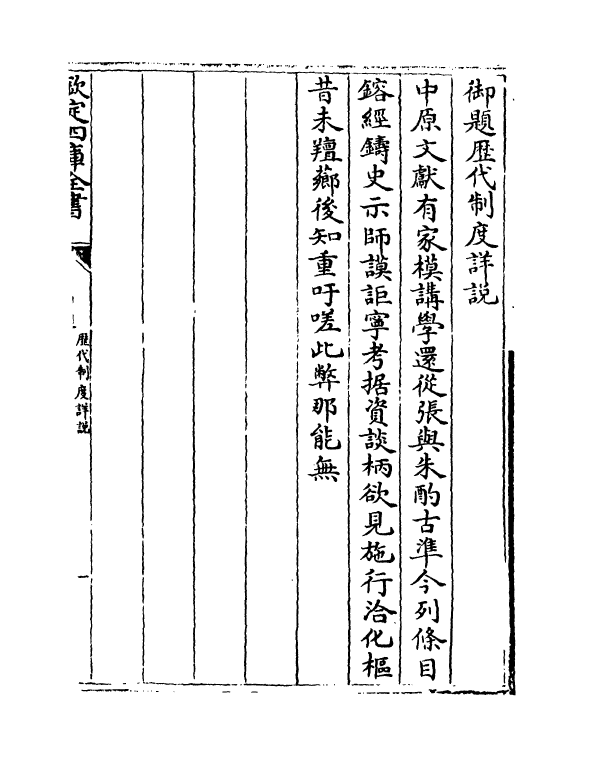 御題歷代制度詳説
中原文獻有家模講學還從張與朱酌古準今列條目
鎔經鑄史示師謨詎寧考据資談柄欲見施行洽化樞
昔未羶薌後知重吁嗟此弊那能無
欽定四庫全書
歷代制度詳説
一